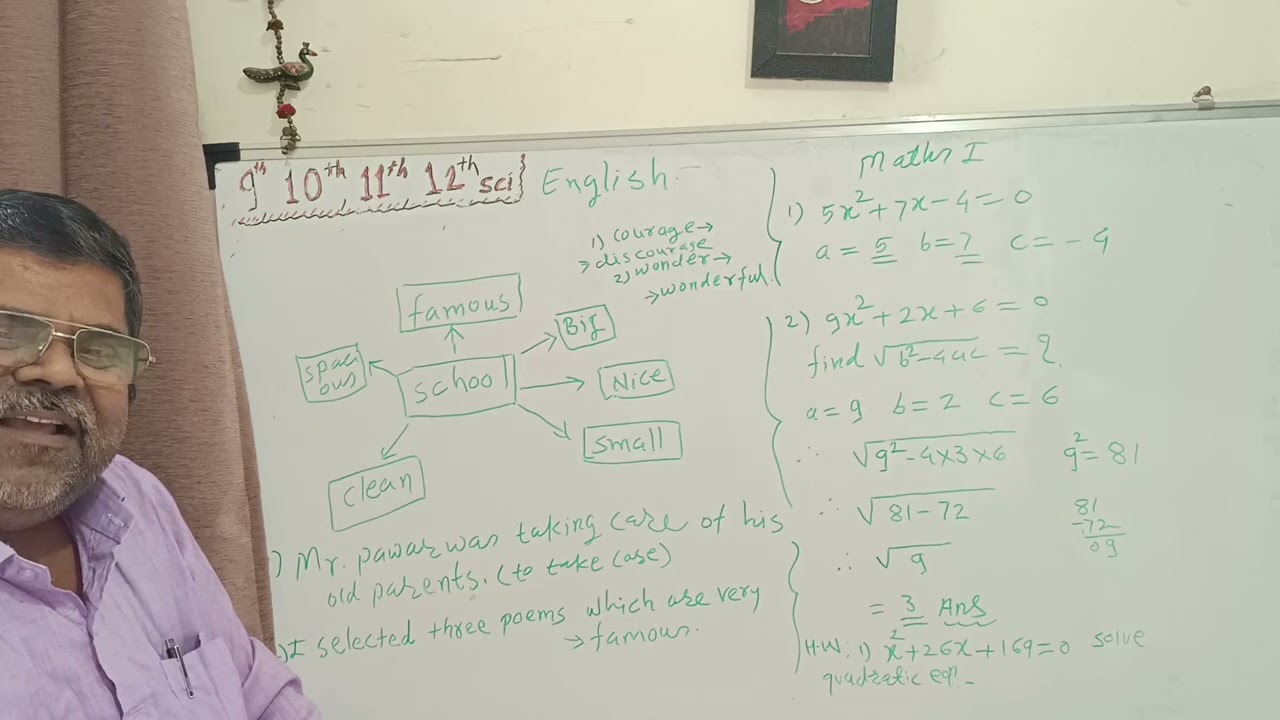 9th 10th 11th 12th sci} English
1) courage→
→discourage
2) wonder→
→wonderful.
famous
Big
spaci
ous
school
Nice
small
clean
) Mr. pawar was taking care of his
old parents. (to take care)
)I selected three poems which are very
→famous.
Maths I
1) 5x²+7x-4=0
a=5 b=7 c=-4
2) 9x²+2x+6=0
find √b²-4ac = ?
a=9 b=2 c=6
∴ √9²-4×3×6 9²=81
∴ √81-72
81
-72
09
∴ √9
= 3 Ans
H.W: 1) x²+26x+169=0 solve
quadratic eqn.